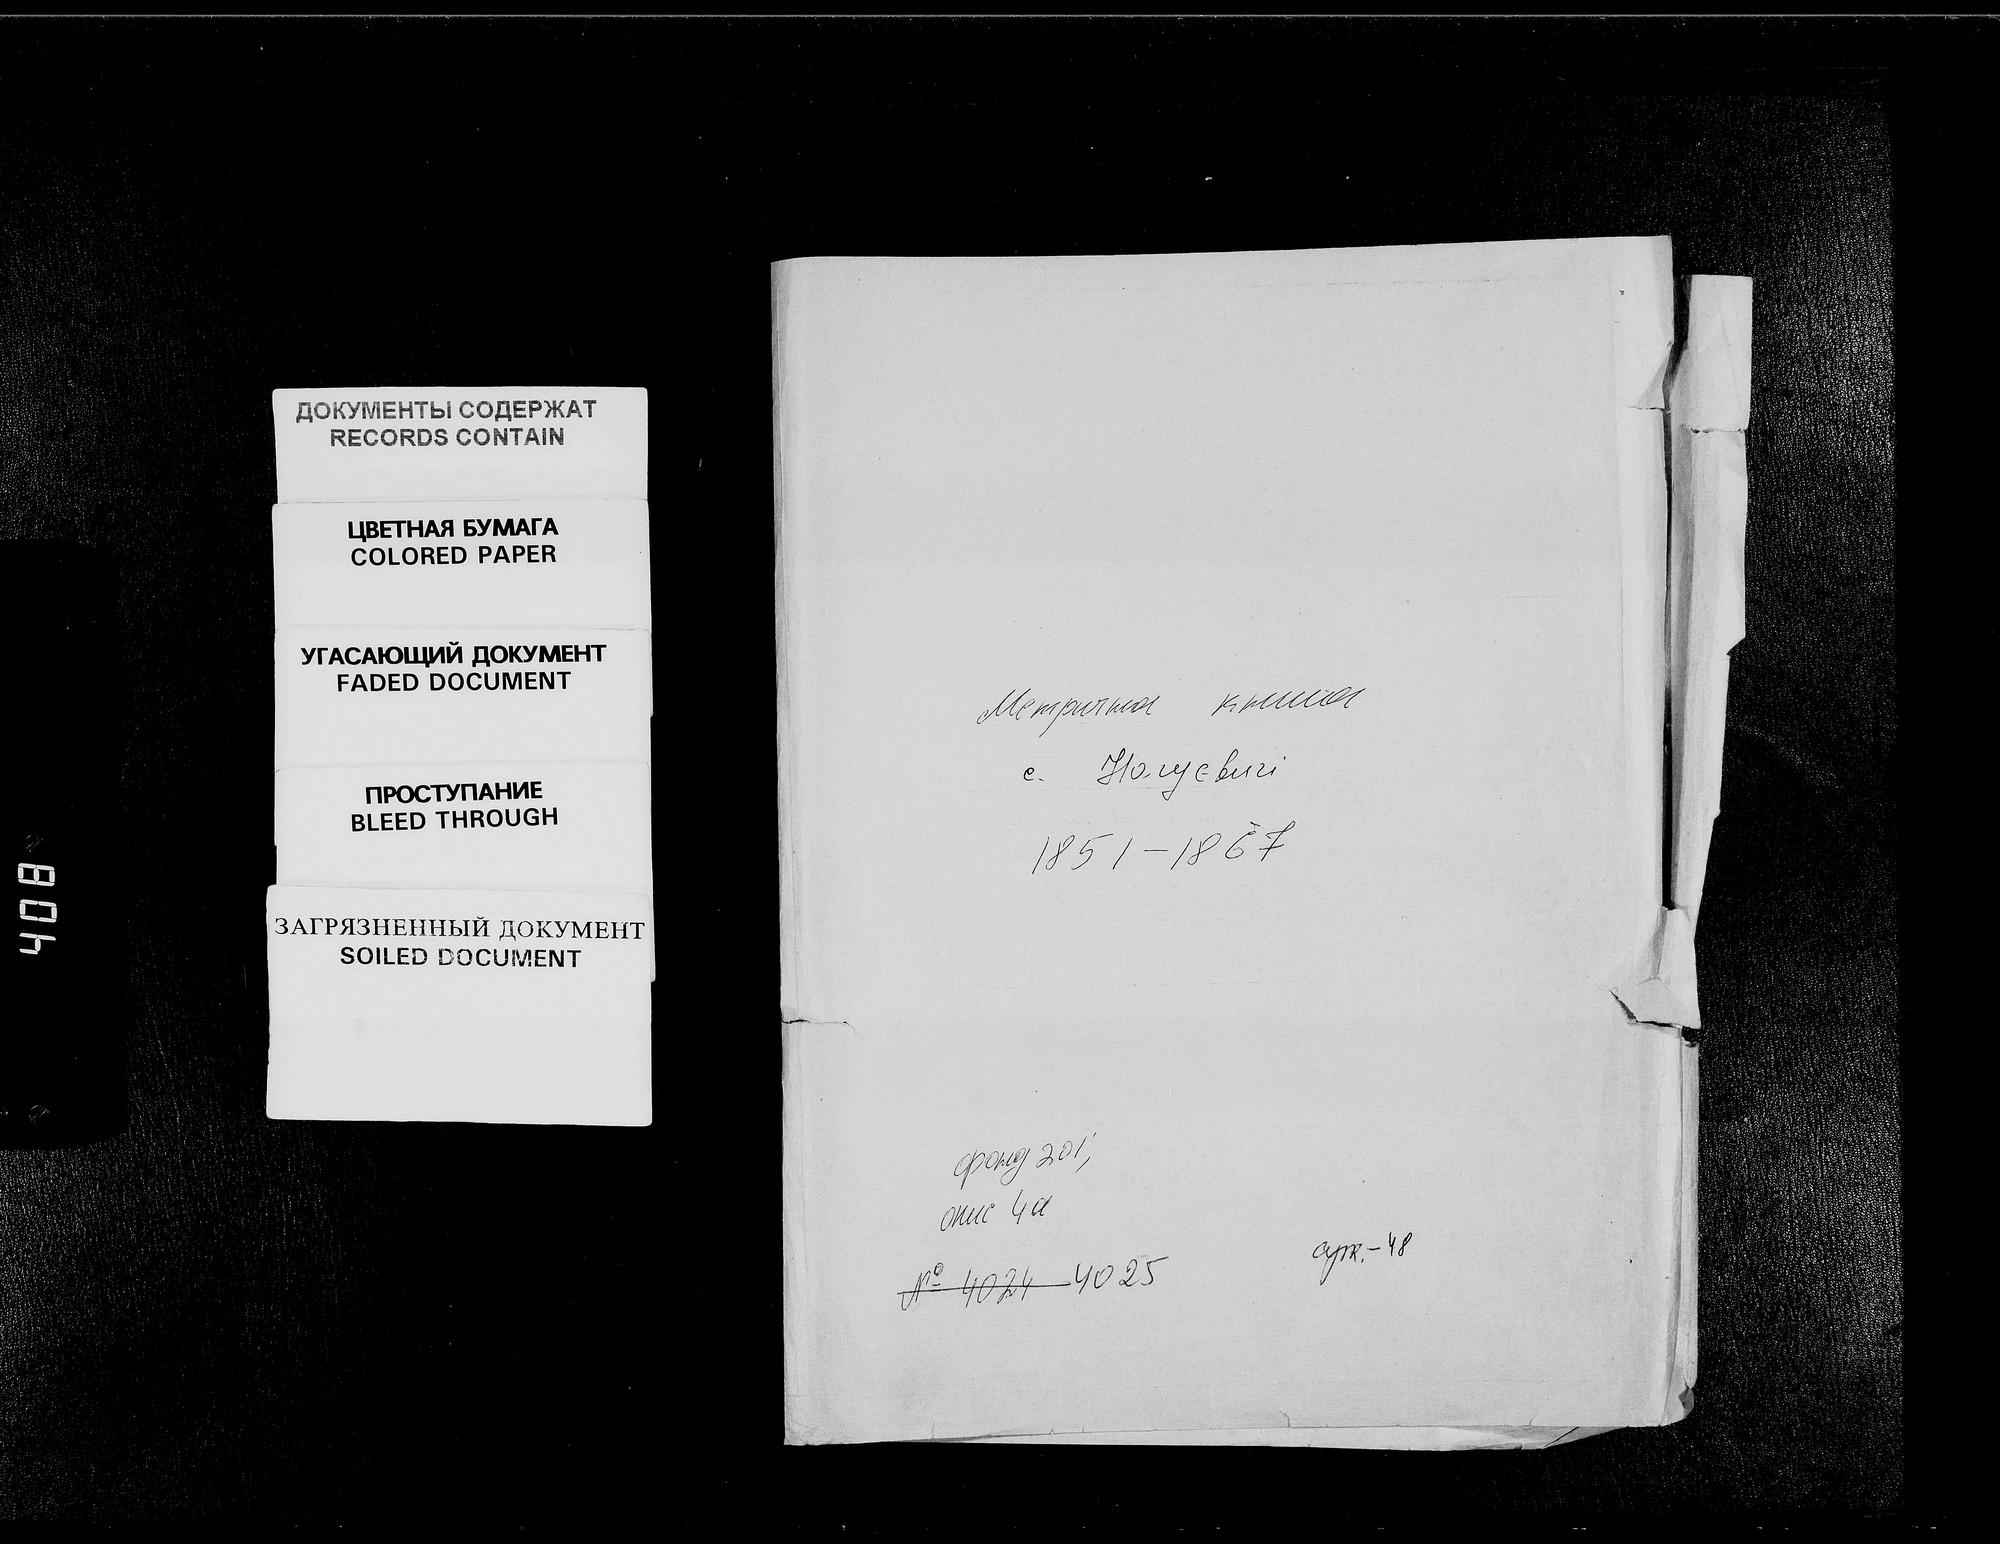 ДОКУМЕНТЫ СОДЕРЖАТ
RECORDS CONTAIN
ЦВЕТНАЯ БУМАГА
COLORED PAPER
УГАСАЮЩИЙ ДОКУМЕНТ
FADED DOCUMENT
ПРОСТУПАНИЕ
BLEED THROUGH
ЗАГРЯЗНЕННЫЙ ДОКУМЕНТ
SOILED DOCUMENT
408
Метрична книга
с. Нагуєвичі
1851-1867
фонд 201,
опис 4а
№ 4024 4025
арк.-48